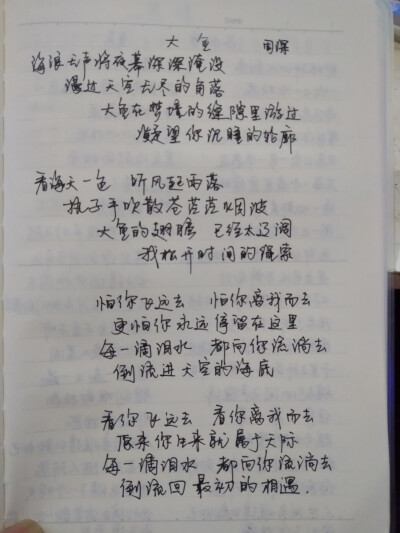 大鱼 周深
海浪无声将夜幕深深淹没
漫过天空尽头的角落
大鱼在梦境的缝隙里游过
凝望你沉睡的轮廓
看海天一色 听风起雨落
执子手吹散苍茫茫烟波
大鱼的翅膀 已经太辽阔
我松开时间的绳索
怕你飞远去 怕你离我而去
更怕你永远停留在这里
每一滴泪水 都向你流淌去
倒流进天空的海底
看你飞远去 看你离我而去
原来你生来就属于天际
每一滴泪水 都向你流淌去
倒流回最初的相遇.